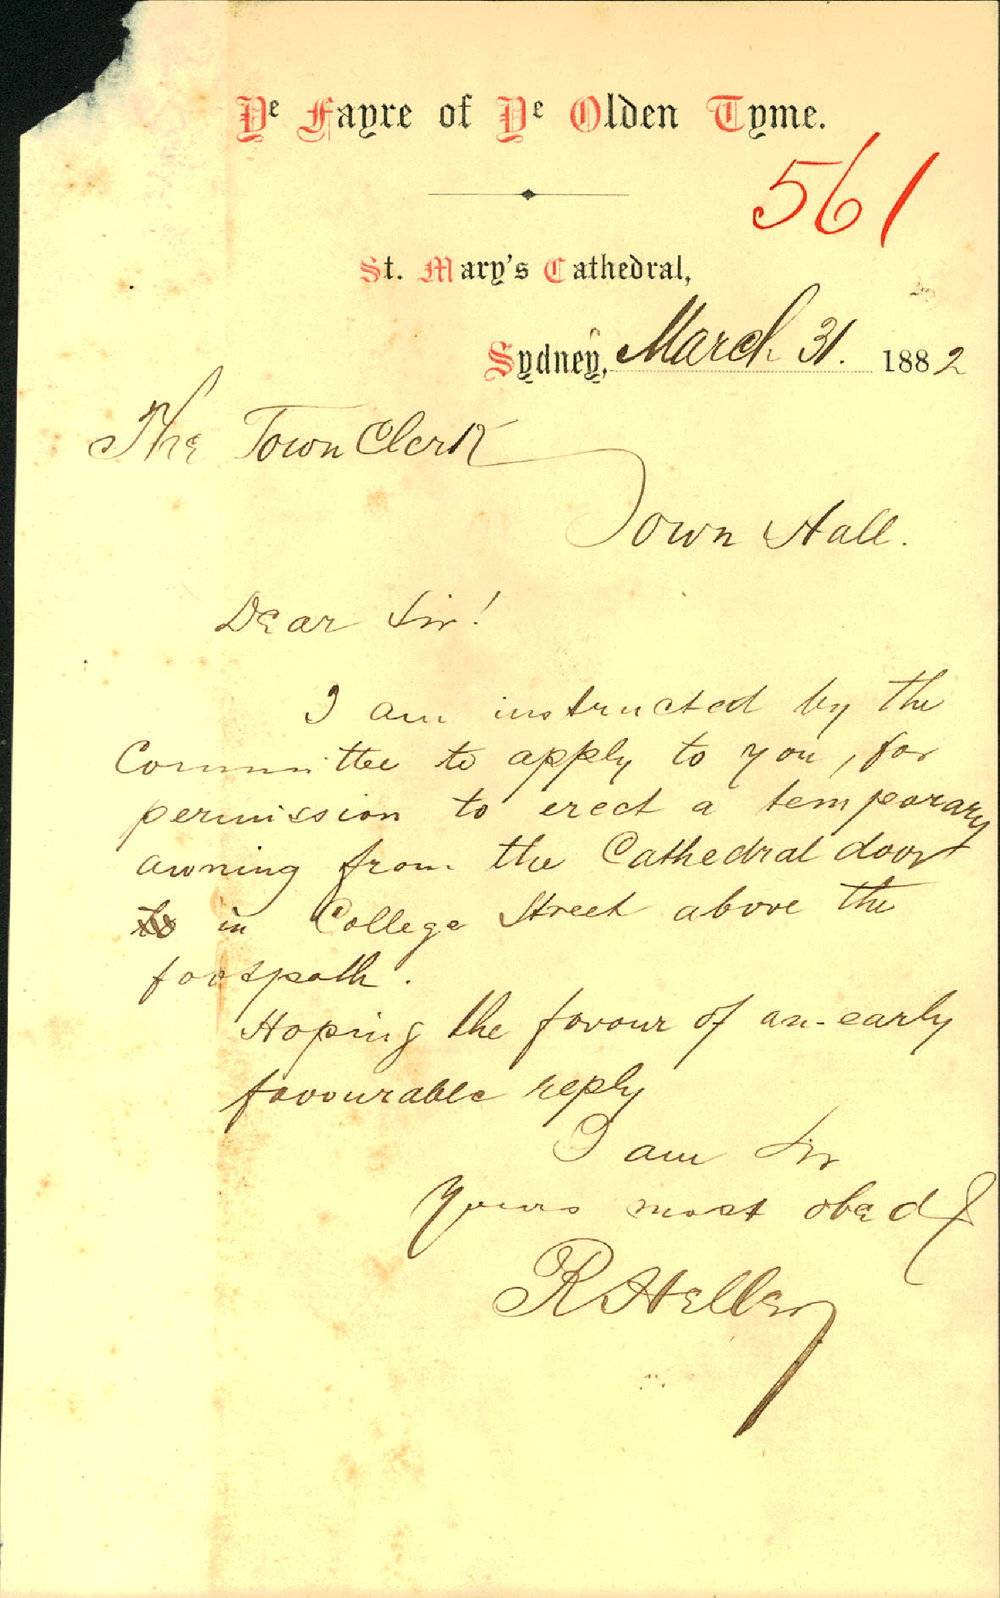 Ye Fayre of Ye Olden Tyme.
561
St. Mary's Cathedral,
Sydney, March 31. 1882
The Town Clerk
Town Hall.
Dear Sir!
I am instructed by the
Committee to apply to you, for
permission to erect a temporary
awning from the Cathedral door
to in College Street above the
footpath.
Hoping the favour of an early
favourable reply
I am Sir
Yours most obed
R Heller